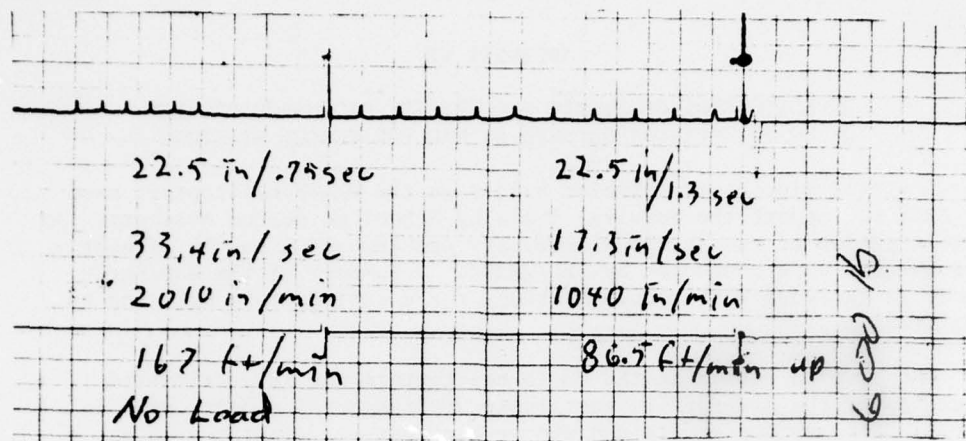 22.5 in/.75sec
33.4in/sec
2010 in/min
167 ft/min
No Load
22.5 in/1.3 sec
17.3in/sec
1040 in/min
86.5 ft/min up
600 lb